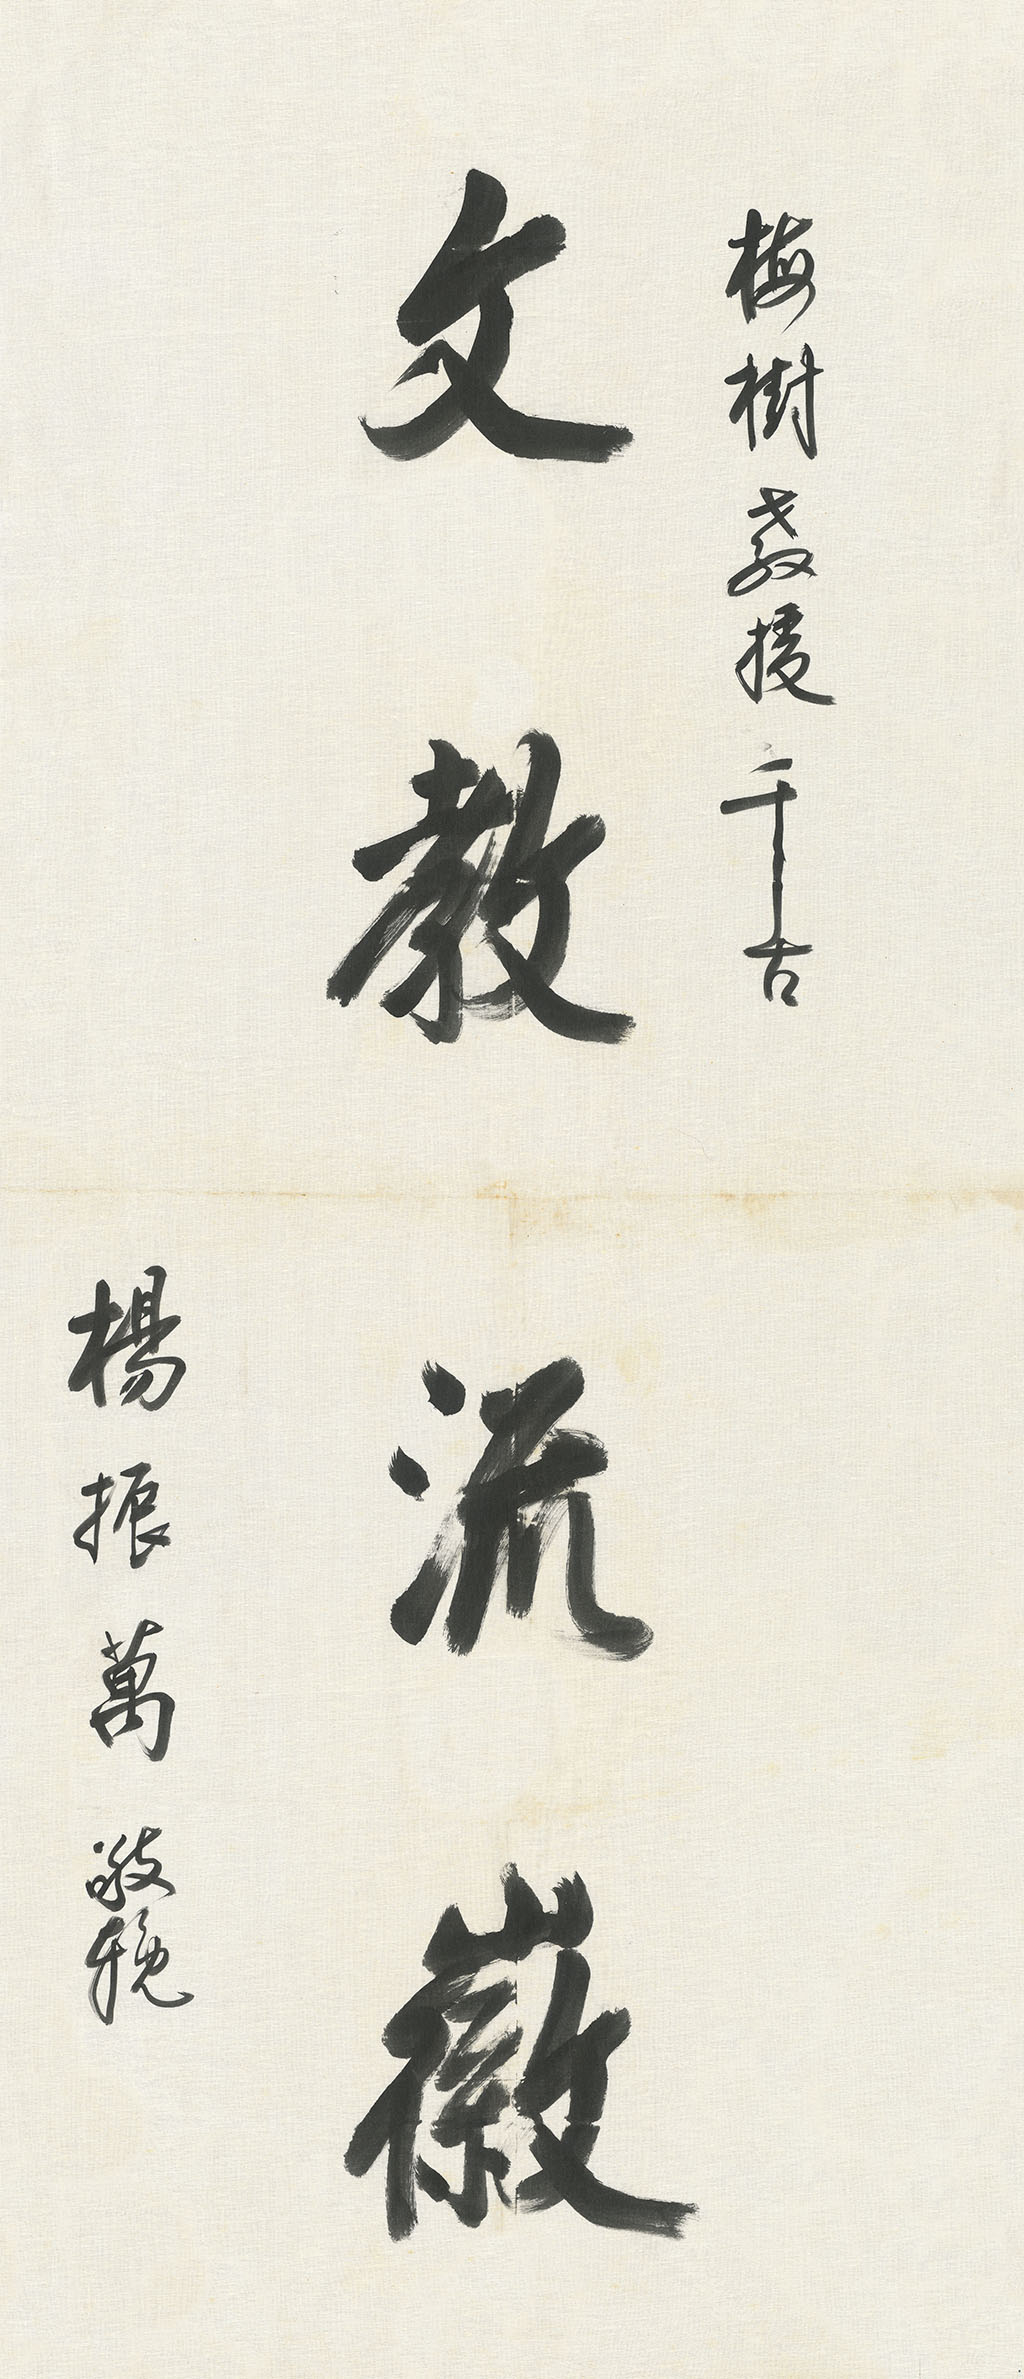 梅樹教授千古
文教流徽
楊振萬敬輓